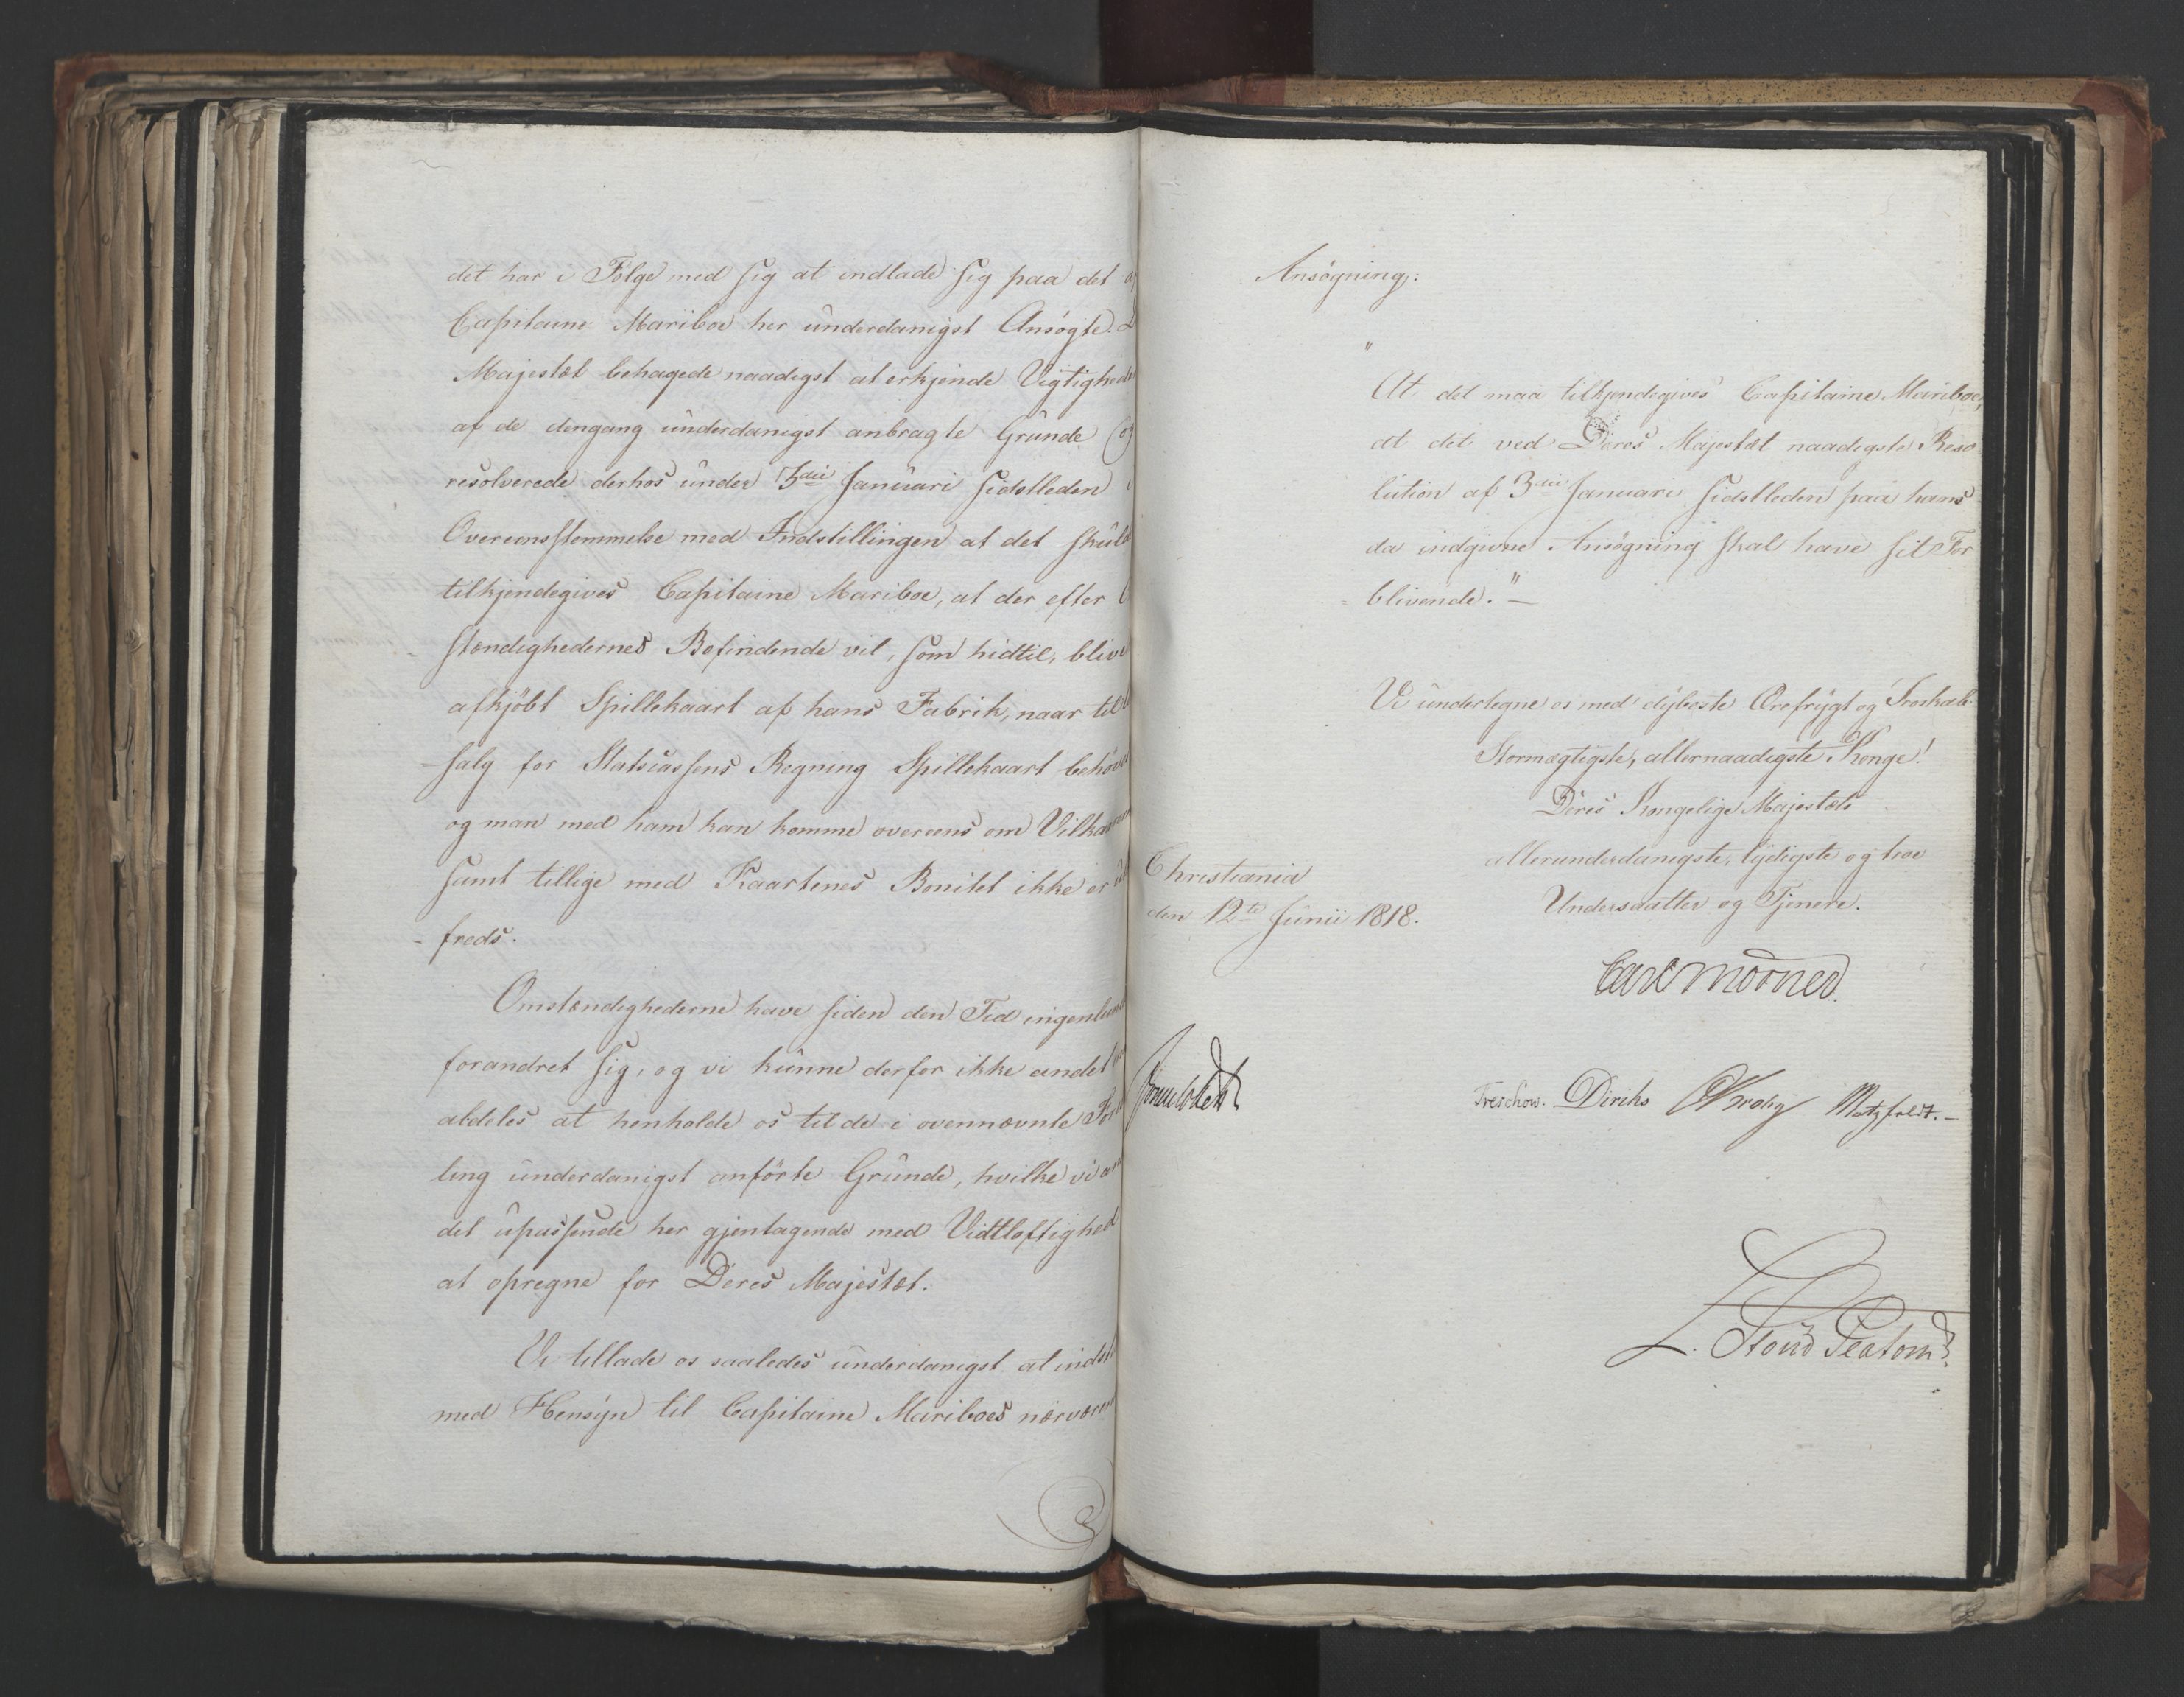 det har i Følge med sig at indlade sig paa det
Capitaine Mariboe her underdanigst Ansøgte.
Majestæt behagede naadigst at erkjende Vigtighede
af de dengang underdanigst anbragte Grunde og
resolverede derhos under 3die Januari sidstleden i
Overeensstemmelse med Indstillingen at det skuld
tilkjendegives Capitaine Mariboe, at der efter
stændighedernes Befindende vil, som hidtil, blive
afkjøbt Spillekaart af hans Fabrik, naar til
salg for Statscassens Regning Spillekaart behøve
og man med ham kan komme overeens om Vilkaarene
samt tillige med Kaartenes Bonitet ikke er
freds.
Omstændighederne have siden den Tid ingenlund
forandret sig, og vi kunne derfor ikke andet
aldeles at henholde os til de i ovennævnte
ling underdanigst anførte Grunde, hvilke vi
det upassende her gjentagende med Vidtløftighed
at opregne for Deres Majestæt.
Vi tillade os saaledes underdanigst at indst
med Hensyn til Capitaine Mariboes nærværen
Ansøgning:
"
At det maa tilkjendegives Capitaine Mariboe,
at det ved Deres Majestæt naadigste Reso
lution af 3die Januari sidstleden paa hans
da indgivne Ansøgning skal have sit For
blivende." —
Vi undertegne os med dybeste Ærefrygt og Troskab
Stormægtigste, allernaadigste Konge!
Deres Kongelige Majestæts
allerunderdanigste, lydigste og troe
Undersaatter og Tjenere.
Christiania
den 12te Junii 1818.
Carl Mörner.
Treschow. Diriks Krohg Motzfeldt. —